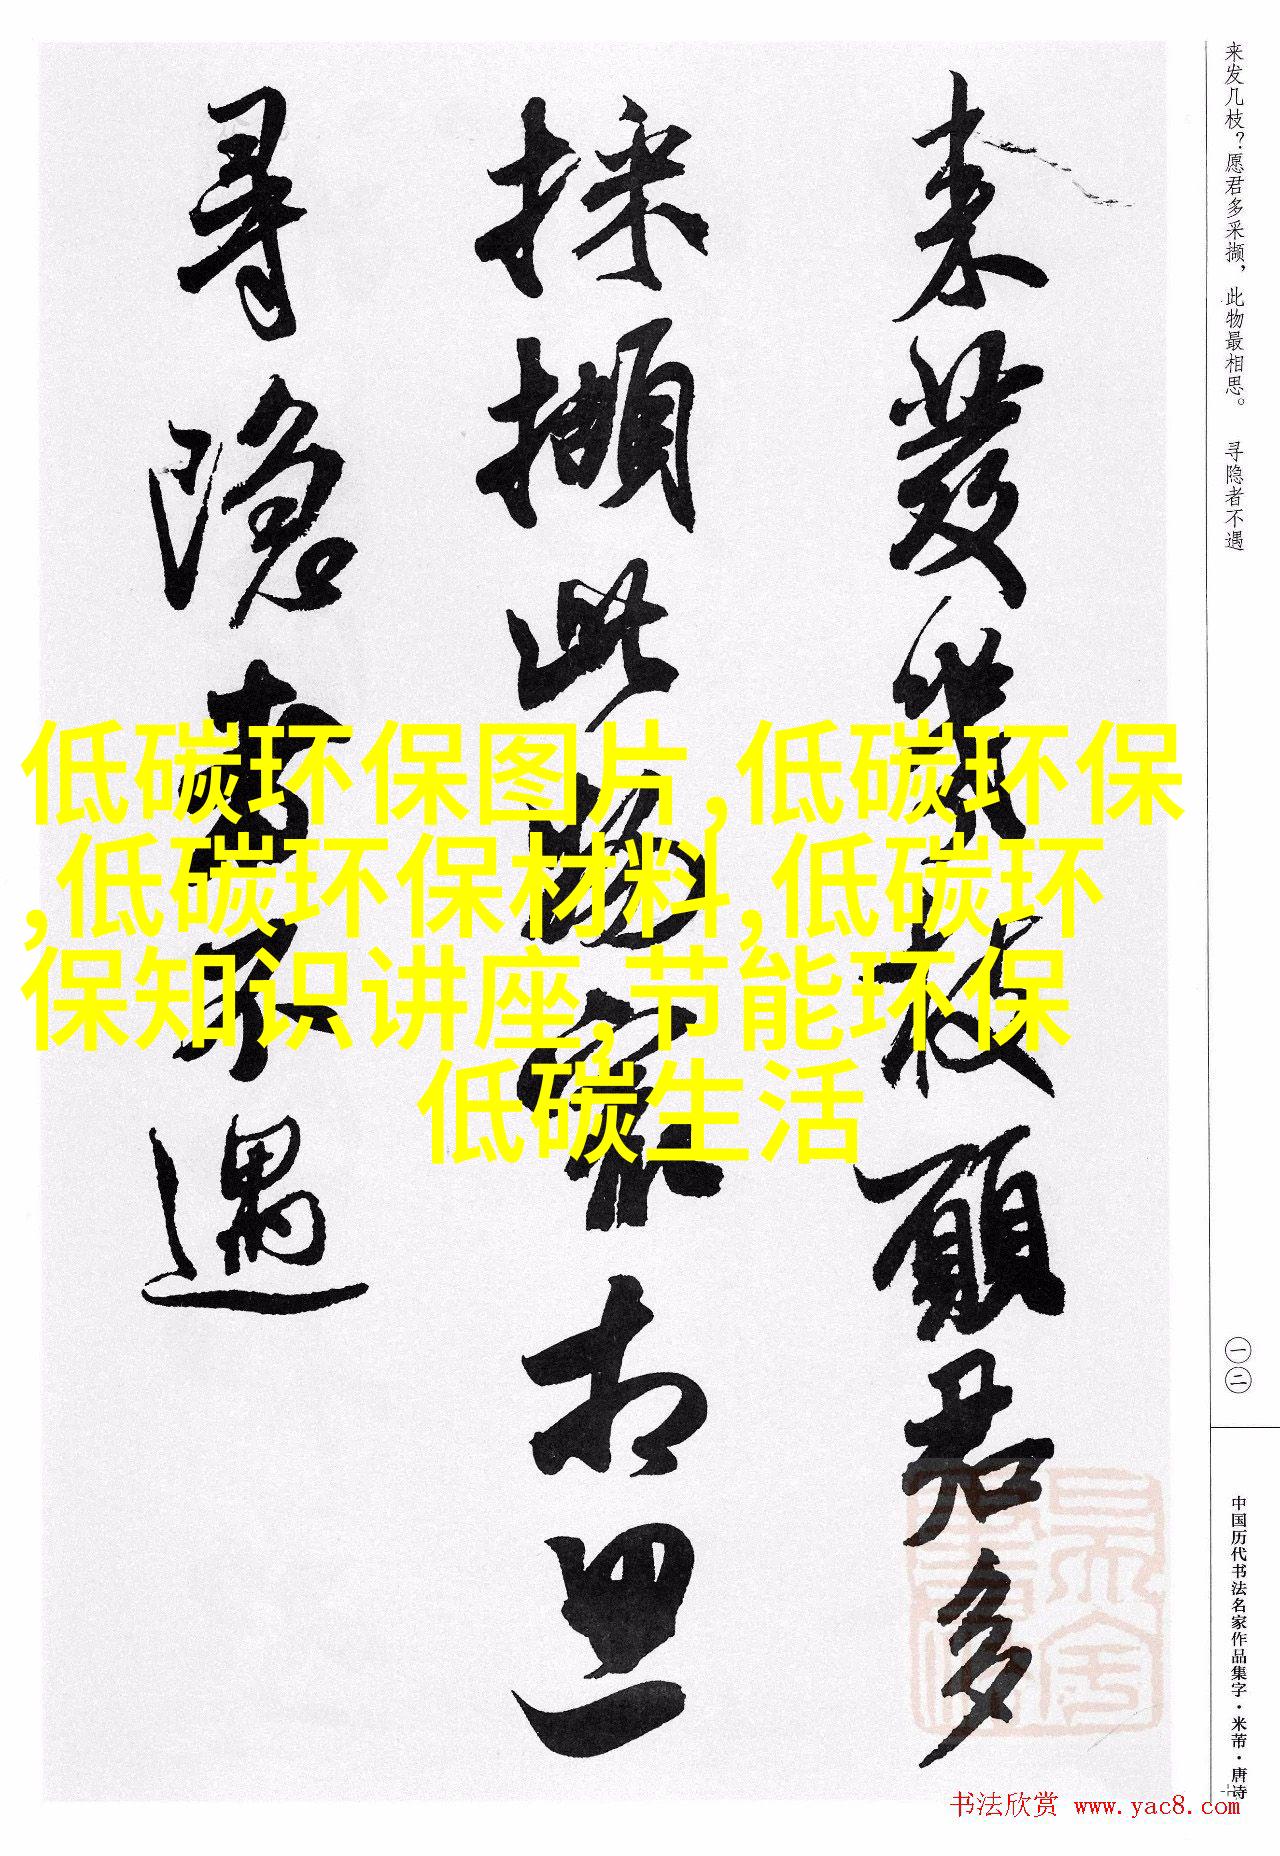 来发几枝？愿君多采撷，此物最相思。 寻隐者不遇
来發幾枝願君多
採擷此物最相思
尋隱者不遇
低碳环保图片,低碳环保
,低碳环保材料,低碳环
保知识讲座,节能环保
低碳生活
一二
中国历代书法名家作品集字·米芾·唐诗
书法欣赏 www.yac8.com